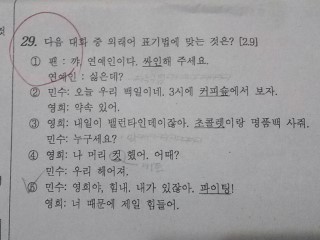 29. 다음 대화 중 외래어 표기법에 맞는 것은? [2.9]
① 팬 : 꺄, 연예인이다. 싸인해 주세요.
연예인 : 싫은데?
② 민수: 오늘 우리 백일이네, 3시에 커피숖에서 보자.
영희: 약속 있어.
③ 영희: 내일이 밸런타인데이잖아. 초콜렛이랑 명품백 사줘.
민수: 누구세요?
④ 영희: 나 머리 컷 했어. 어때?
민수: 우리 헤어져.
⑤ 민수: 영희야, 힘내. 내가 있잖아. 파이팅!
영희: 너 때문에 제일 힘들어.